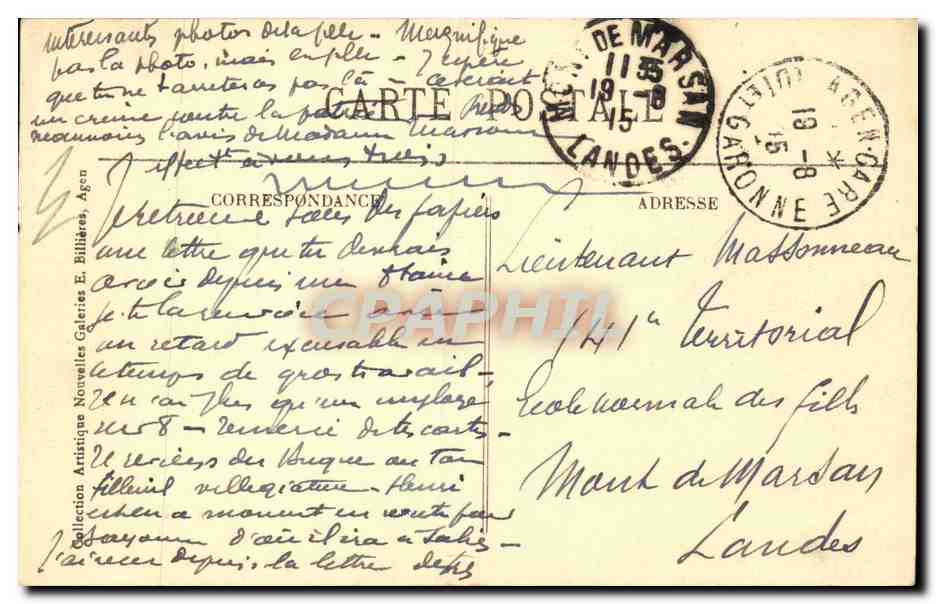 interessants photos de ta fille - Magnifique
pas la photo, mais en fille - J'espère
que tu ne t'arreteras pas là - ce serait
un crime contre la patrie
l'avis de Madame Massonneau
affectt à vous trois
CARTE POSTALE
MONT DE MARSAN
11 35
19 - 8
15
LANDES
AGEN-GARE
19 - 8
15
LOT ET GARONNE
CORRESPONDANCE
ADRESSE
Je retrouve sous des papiers
une lettre que tu devrais
avoir depuis une 8taine
Je te la envoie avec
un retard excusable en
ce temps de gros travail -
Je n'ai plus qu'un employé
sur 8 - Remercie de tes cartes -
Je reviens du Bugue où ton
filleul villégiature - Henri
en ce moment en route pour
d'où il ira à Salies -
J'ai reçu depuis ta lettre
Lieutenant Massonneau
141e Territorial
Ecole normale des filles
Mont de Marsan
Landes
Collection Artistique Nouvelles Galeries E. Billières, Agen
CPAPHIL